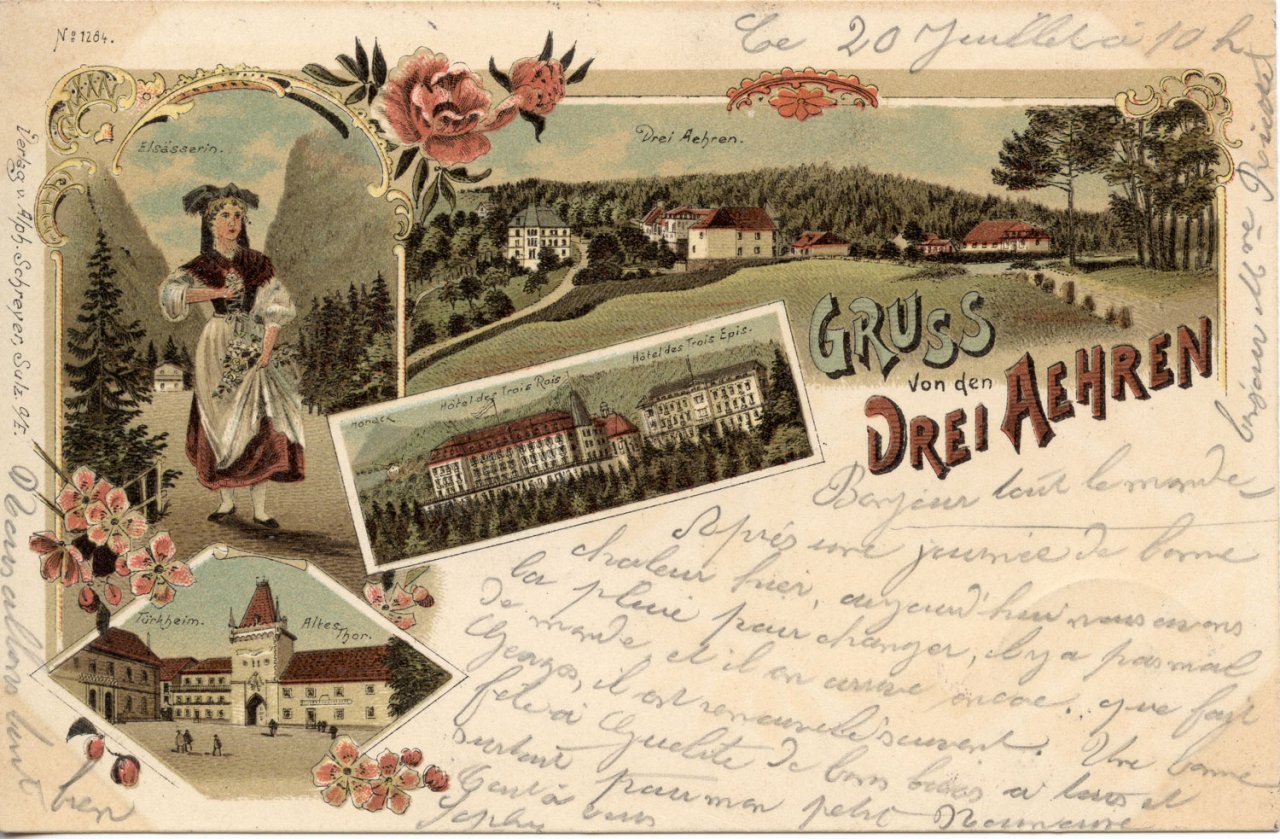 No 1264.
Ce 20 Juillet à 10 h
Elsässerin.
Drei Aehren.
Verlag v. Alph. Schreyer, Sulz O/E.
GRUSS
von den
DREI AEHREN
Honack
Hôtel des Trois Rois
Hôtel des Trois Epis.
Türkheim.
Altes
Thor.
Bonjour tout le monde
Après une journée de bonne
chaleur hier, aujourd'hui nous avons
la pluie pour changer, il y a pas mal
de monde, et il en arrive encore. que fait
Georges, il est souvent. Une bonne
fête à de bons baisers à tous et
surtout pour mon petit
Tout à vous
Nous allons tous bien
bonjour Mère